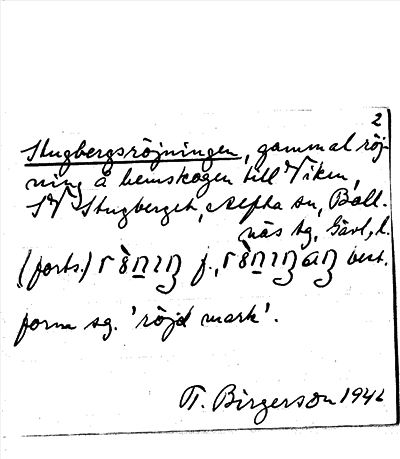 2
Stugbergsröjningen, gammal röj-
ning å hemskogen till Viken,
SV Stugberget, Alfta sn, Boll-
näs tg, Gävl. l.
(forts.) f., best.
form sg. 'röjd mark'.
T. Birgerson 1946